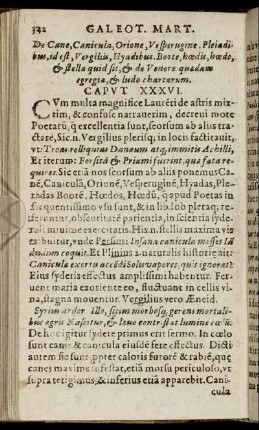 332 GALEOT. MART.
De Cane, Canicula, Orione, Vesperugine, Pleiadi-
bus, id est, Vergiliis, Hyadibus, Boote, hœdis, hœdo,
& stella quid sit, & de Venere quædam
egregia, & ludo chartarum.
CAPVT XXXVI.
CVm multa magnifice Laurēti de astris mix-
tim, & confuse narrauerim, decreui more
Poetarū, q excellentia sunt, seorsum ab aliis tra-
ctate, Sic .n. Vergilius plerisq; in locis factitauit,
vt: Troas relliquias Danaum atq; immitis Achilli
Et iterum: Forsitā & Priami fuerint, quæ fata re-
quires. Sic etiā nos seorsum ab aliis ponemus Ca-
nē, Caniculā, Orionē, Vesperuginē, Hyadas, Ple-
iadas Bootē, Hœdos, Hœdū, quapud Poetas in
frequentissimo vsu sunt, &
obscuritatē patientia, in sciētia syde-
minime exercitatis. His .n. stellis maxima vis
vnde Persius: Insana canicula messes iā
dudum coquit. Et Plinius 2. naturalis historię ait:
Caniculæ exortu accēdi Solis vapores, quis ignorat?
Eius syderis effectus amplissimi habentur. Fer-
uent maria exoriente eo, fluctuant in cellis vi-
na, stagna mouentur. Vergilius vero Æneid.
Syrius ardor ille, sitim morbosq; gerens mortali-
bus ægris Nascitur, & læuo contristat lumine cœlū.
De hoc igitur sydere primus erit sermo. In cœlo
sunt canis & canicula eiusdē fere effectus. Dicti
autem sic sunt ,ppter caloris furorē & rabiē, quę
canes maxime infestat, etiā morsu periculoso, vt
supra tetigimus, & inferius etiā apparebit. Cani-
cula